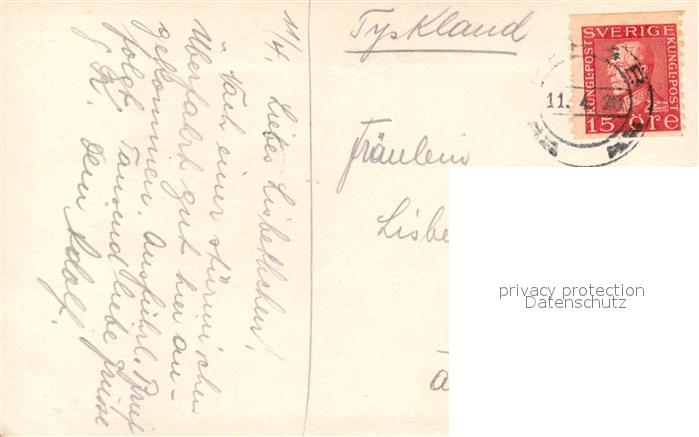 11/4. Liebes Lisbethchen!
Nach einer stürmischen
Überfahrt gut hier an-
gekommen. Ausführl. Brief
folgt. Tausend liebe Grüsse
u. K. Dein Adolf.
Tyskland
Fräulein
Lisbe
a
SVERIGE
KUNGL·POST
KUNGL·POST
15 ÖRE
11. 4
privacy protection
Datenschutz